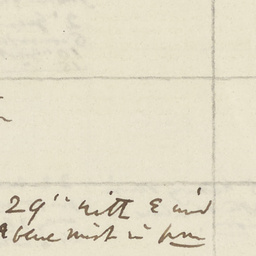 29" with E wind
& blue mist in pm